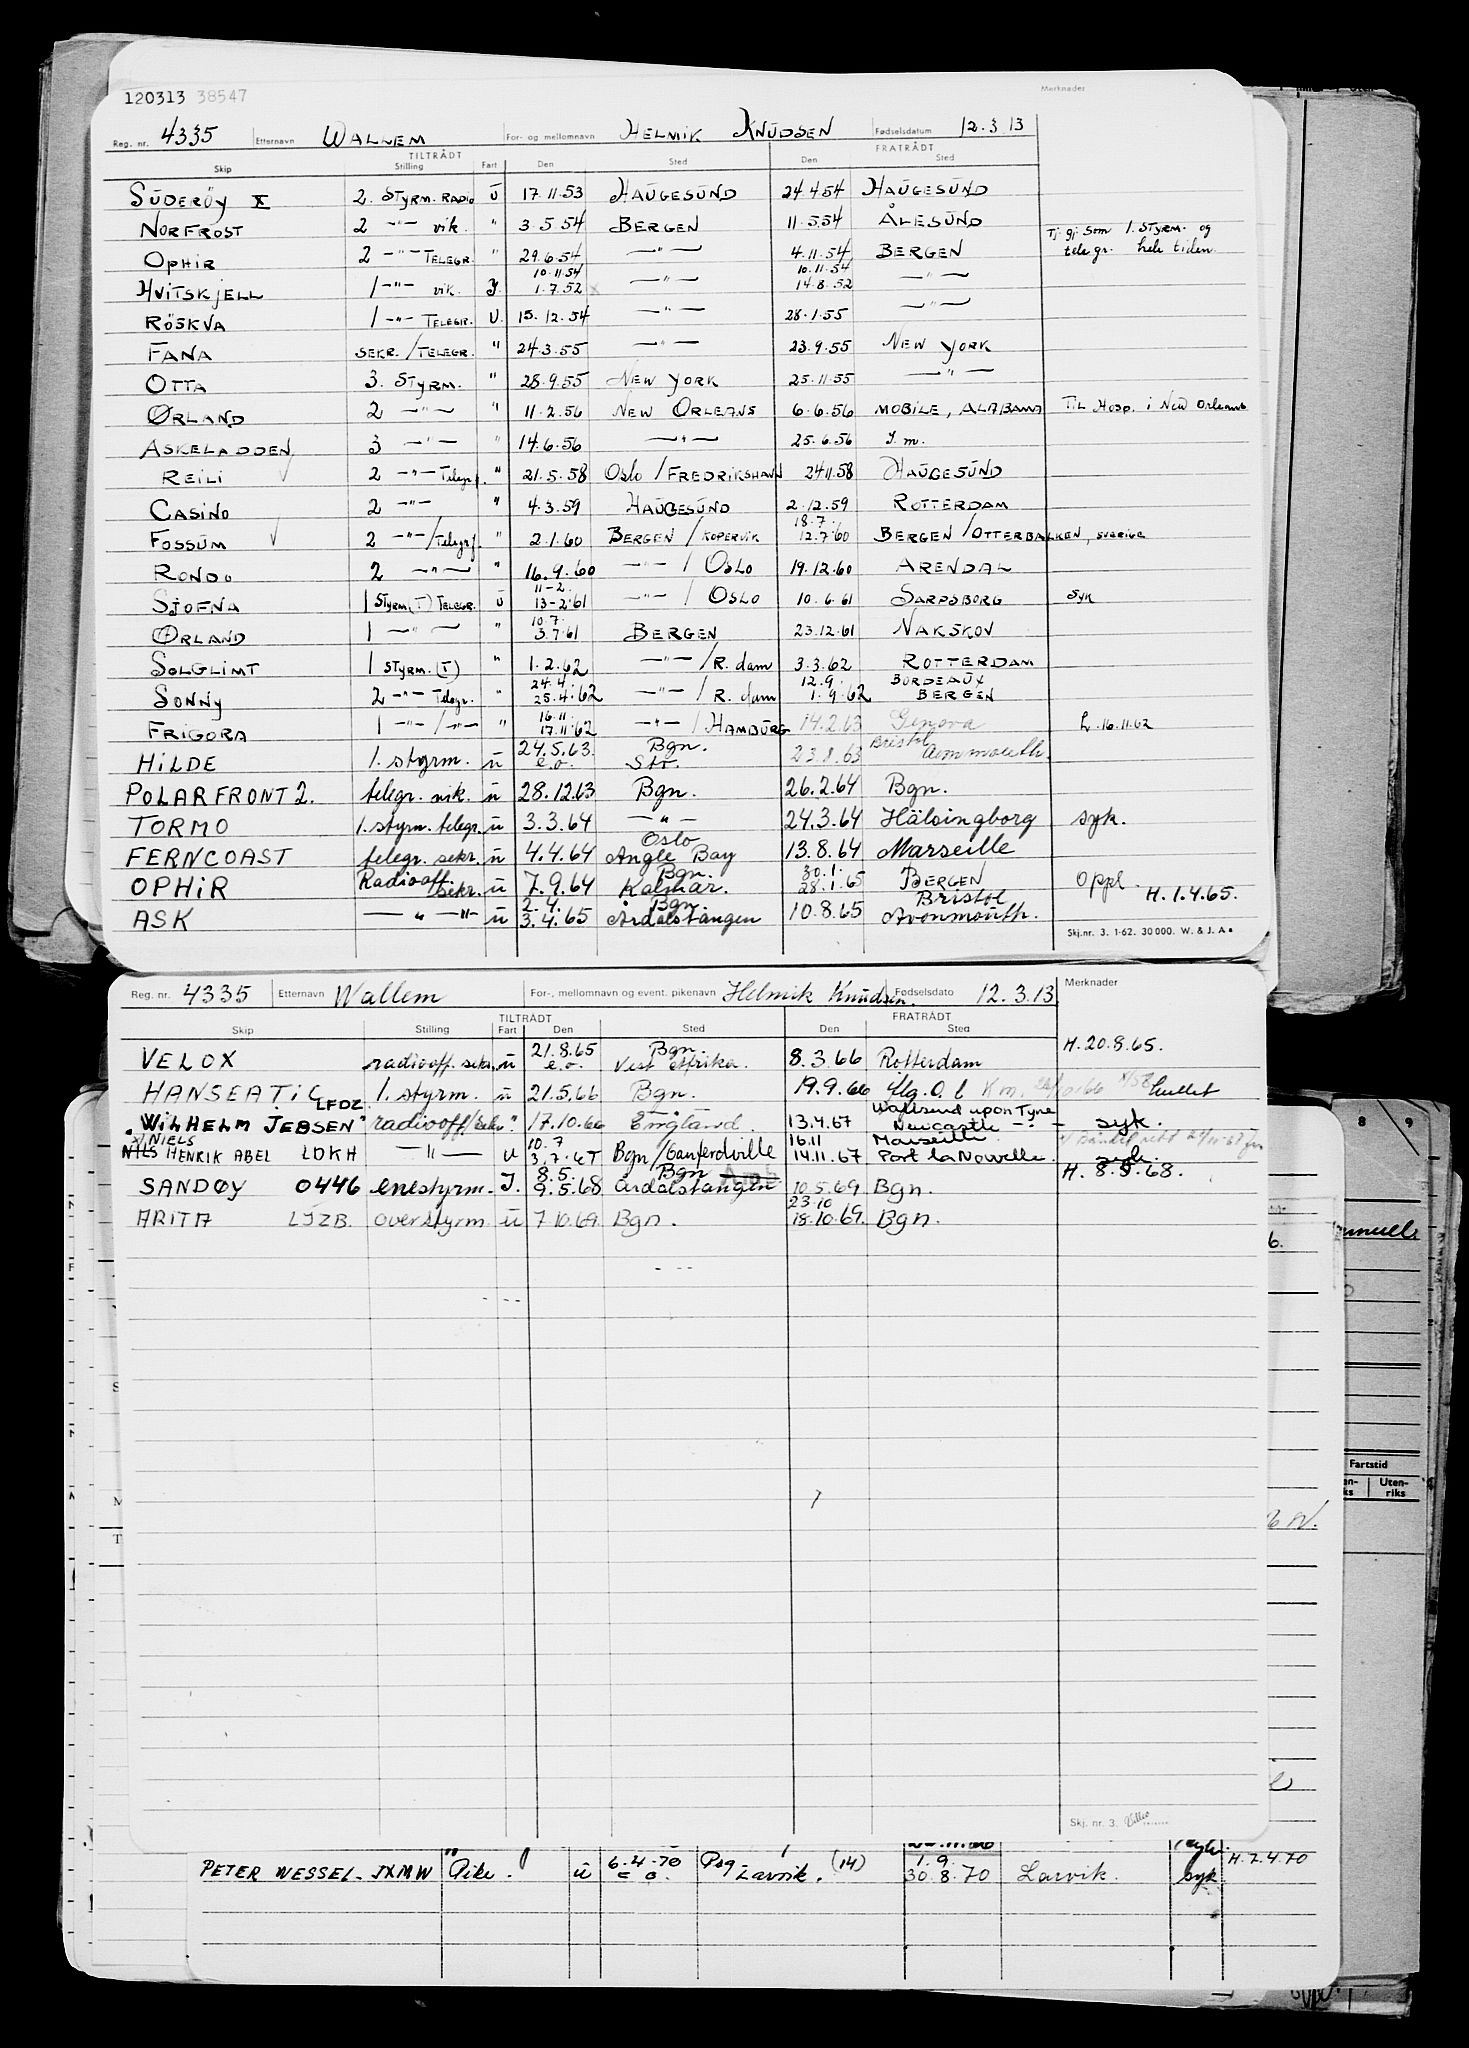 120313 38547
Merknader
Reg. nr. 4335 Etternavn WALLEM For- og mellomnavn HELMIK KNUDSEN Fødselsdatum 12.3.13
TILTRÅDT FRATRÅDT
Skip Stilling Fart Den Sted Den Sted
SÜDERÖY X 2. STYRM. RADIO Ü 17.11.53 HAUGESUND 24.4.54 HAUGESUND
NORFROST 2 -"- vik. " 3.5.54 BERGEN 11.5.54 ÅLESUND
Tj. gj. som 1. STYRM. og
telegr. hele tiden
OPHIR 2 -"- TELEGR. " 29.6.54 -"- 4.11.54 BERGEN
10.11.54 10.11.54
HVITSKJELL 1 -"- vik. J. 1.7.52 -"- 14.8.52 -"-
RÖSKVA 1 -"- TELEGR. U. 15.12.54 -"- 28.1.55 -"-
FANA SEKR./TELEGR. " 24.3.55 -"- 23.9.55 NEW YORK
OTTA 3. STYRM. " 28.9.55 NEW YORK 25.11.55 -"-
ØRLAND 2 -"- " 11.2.56 NEW ORLEANS 6.6.56 MOBILE, ALABAMA TIL Hosp. i New Orleans
ASKELADDEN 3 -"- " 14.6.56 -"- 25.6.56 J.m.
REILI 2 -"- Telegrf. " 21.5.58 Oslo/FREDRIKSHAVN 24.11.58 HAUGESUND
CASINO 2 -"- " 4.3.59 HAUGESUND 2.12.59 ROTTERDAM
18.7.
FOSSUM 2 -"-/Telegrf. " 2.1.60 BERGEN/KOPERVIK 12.7.60 BERGEN/OTTERBALKEN, SVERIGE
RONDO 2 -"- " 16.9.60 -"- / OSLO 19.12.60 ARENDAL
11-2.
SJOFNA 1 STYRM (T) TELEGR. Ü 13-2.61 -"- / OSLO 10.6.61 SARPSBORG SYK
10.7.
ØRLAND 1 -"- " 3.7.61 BERGEN 23.12.61 NAKSKOV
SOLGLIMT 1 STYRM. (T) " 1.2.62 -"-/R.dam 3.3.62 ROTTERDAM
24.4. 12.9. BORDEAUX
SONNY 2 -"- Telegr. " 25.4.62 -"-/R.dam 1.9.62 BERGEN
16.11.
FRIGORA 1 -"-/-"- " 17.11.62 -"-/HAMBURG 14.2.63 Genova h.16.11.62
24.5.63. Bgn. Bristol
HILDE 1. styrm. ü e.o. Str. 23.8.63 Avonmouth.
POLARFRONT 2. telegr. vik. ü 28.12.63 Bgn. 26.2.64 Bgn.
TORMO 1. styrm. telegr. ü 3.3.64 -"- 24.3.64 Hälsingborg syk.
Oslo
FERNCOAST telegr. sekr. ü 4.4.64 Angle Bay 13.8.64 Marseille
Radiooff. Bgn. 30.1.
OPHIR sekr. ü 7.9.64 Kalmar. 28.1.65 BERGEN oppl. H.1.4.65.
2.4. Bgn. Bristol
ASK -"- -"- ü 3.4.65 Årdalstangen 10.8.65 Avonmouth.
Skj.nr. 3. 1-62. 30 000. W. & J. A
Reg. nr. 4335 Etternavn Wallem For-, mellomnavn og event. pikenavn Helmik Knudsen. Fødselsdato 12.3.13 Merknader
TILTRÅDT FRATRÅDT
Skip Stilling Fart Den Sted Den Sted
21.8.65 Bgn. H.20.8.65.
VELOX radiooff. sekr. ü e.o. Vest Afrika. 8.3.66 Rotterdam
HANSEATIC 1. styrm. ü 21.5.66 Bgn. 19.9.66
LFDZ Wallsend upon Tyne
"WILHELM JEBSEN" radiooff/sekr. " 17.10.66 England. 13.4.67 Newcastle -"- syk.
x) NIELS 10.7 16.11 Marseille.
NILS HENRIK ABEL LDKH -"- U 3.7.67 Bgn/Ganferdville 14.11.67 Port la Nouvelle. syk.
8.5. Bgn H.8.5.68.
SANDØY 0446 enestyrm. J. 9.5.68 Årdalstangen 10.5.69 Bgn.
23.10
ARITA LJZB. overstyrm. ü 7.10.69. Bgn. 18.10.69. Bgn.
8 9
Fartstid
Uten-
riks
Skj. nr. 3.
6.4.70 1.9. H.7.4.70
PETER WESSEL. JXMW Pike. ü e o. Larvik. (14) 30.8.70 Larvik. syk